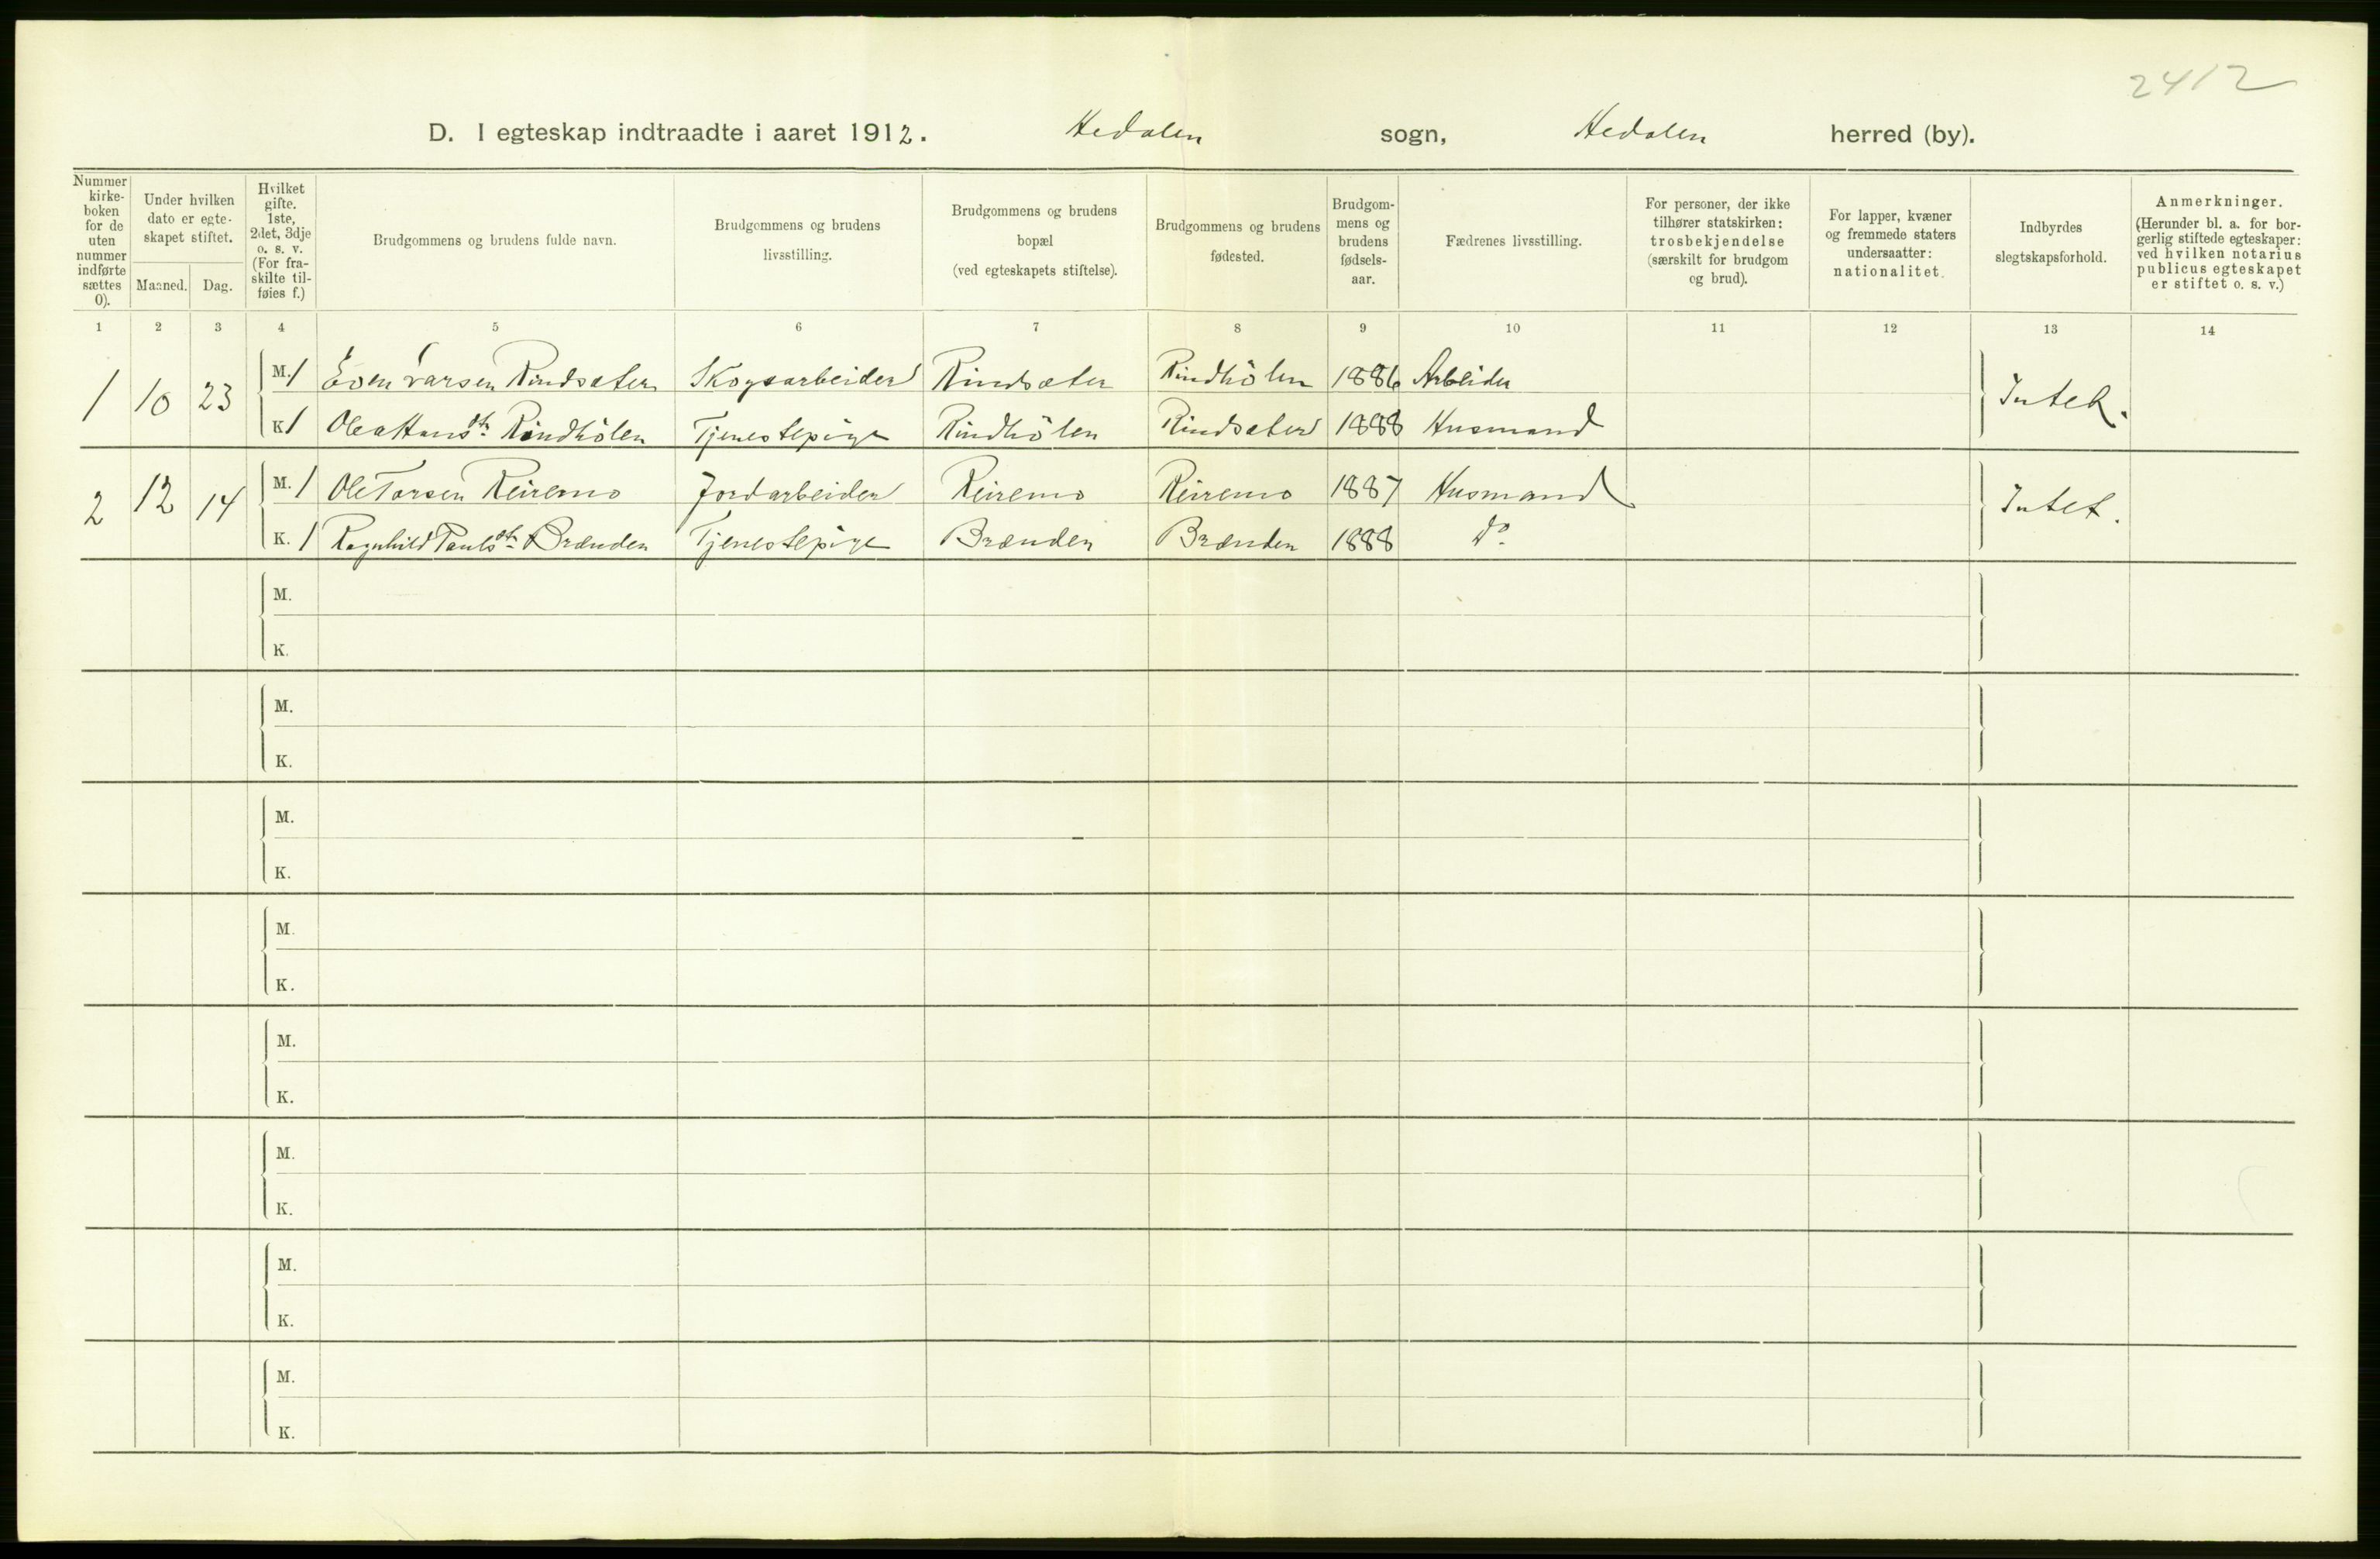 2412
D. I egteskap indtraadte i aaret 1912. Hedalen sogn, Hedalen herred (by).
Nummer kirke-boken for de uten nummer indførte sættes 0).
Under hvilken dato er egte-skapet stiftet.
Maaned. Dag.
Hvilket gifte. 1ste, 2det, 3dje o. s. v. (For fra-skilte til-føies f.)
Brudgommens og brudens fulde navn.
Brudgommens og brudens livsstilling.
Brudgommens og brudens bopæl (ved egteskapets stiftelse).
Brudgommens og brudens fødested.
Brudgom-mens og brudens fødsels-aar.
Fædrenes livsstilling.
For personer, der ikke tilhører statskirken: trosbekjendelse (særskilt for brudgom og brud).
For lapper, kvæner og fremmede staters undersaatter: nationalitet.
Indbyrdes slegtskapsforhold.
Anmerkninger. (Herunder bl. a. for bor-gerlig stiftede egteskaper: ved hvilken notarius publicus egteskapet er stiftet o. s. v.)
1 2 3 4 5 6 7 8 9 10 11 12 13 14
1 10 23 M. 1 Even Ivarsen Rindsæter Skogsarbeider Rindsæter Rindhölen 1886 Arbeider Intet.
K 1 Olea Hansdt. Rindhölen Tjenestepige Rindhölen Rindsæter 1888 Husmand
2 12 14 M. 1 Ole Torsen Reiremo Jordarbeider Reiremo Reiremo 1887 Husmand Intet.
K. 1 Ragnhild Paulsdt. Brænden Tjenestepige Brænden Brænden 1888 Do.
M.
K.
M.
K.
M.
K.
M.
K.
M.
K.
M.
K.
M.
K.
M.
K.